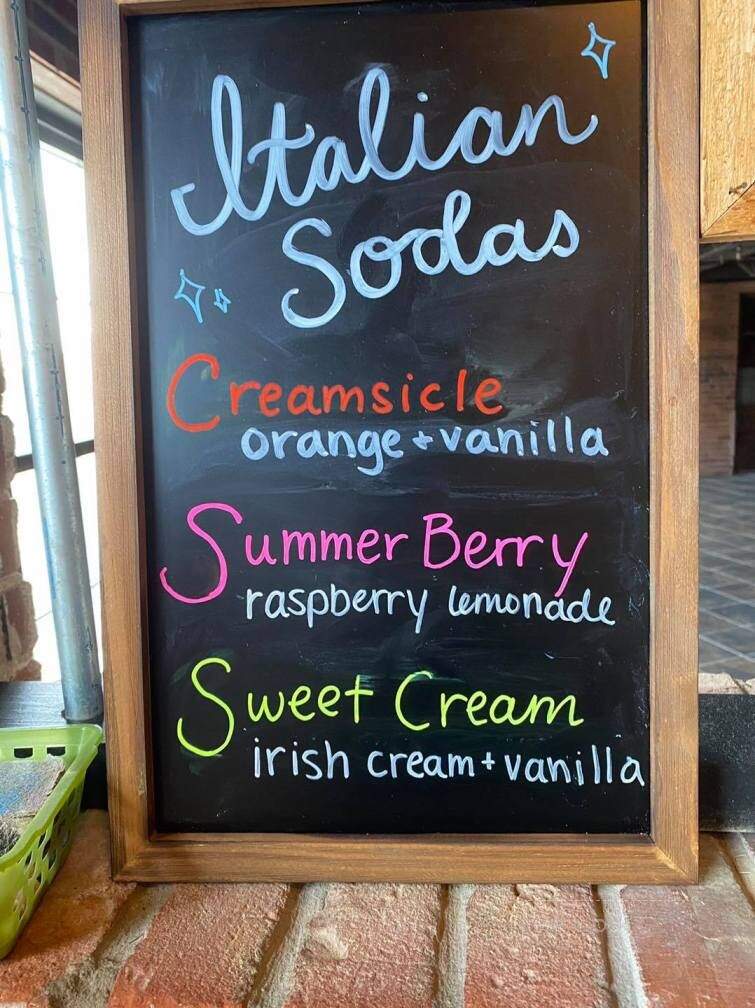 Italian
Sodas
Creamsicle
orange + vanilla
Summer Berry
raspberry lemonade
Sweet Cream
irish cream + vanilla